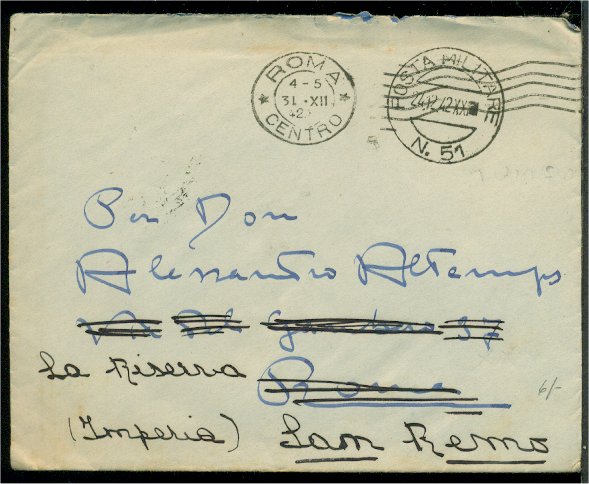 ROMA
4-5
31·XII
42.
CENTRO
POSTA MILITARE
24.12.42 XXI
N. 51
Don
Alessandro Altemps
37
La Riserva
Roma
(Imperia) San Remo
6/-